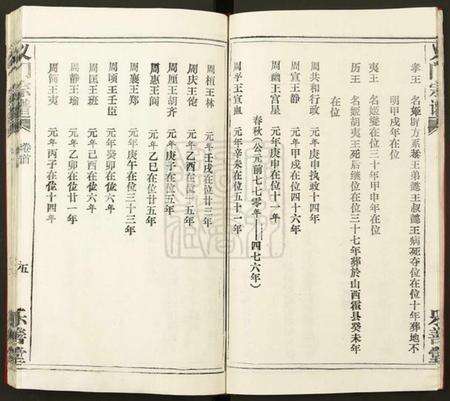 孝王 名姬明方系懿王弟懿王病死夺位在位十年葬地不
明甲戌年在位
夷王 名姬燮在位三十年甲申年在位
历王 名姬胡夷王死后继位在位三十七年葬於山西霍县癸未年
在位
周共和行政 元年庚申执政十四年
周宣王静 元年甲戌在位四十六年
周幽王宫星 元年庚申在位十一年
春秋(公元前七七零年——四七六年)
周平王宜臼 元年辛未在位五十一年
周桓王林 元年壬戌在位廿三年
周庆王佗 元年乙酉在位十五年
周厘王胡齐 元年庚子在位五年
周惠王阆 元年乙巳在位廿五年
周襄王郑 元年庚午在位三十三年
周顷王壬臣 元年癸卯在位六年
周匡王班 元年己酉在位六年
周静王瑜 元年乙卯在位廿一年
周简王夷 元年丙子在位十四年
卷首
乐善堂
乐善堂